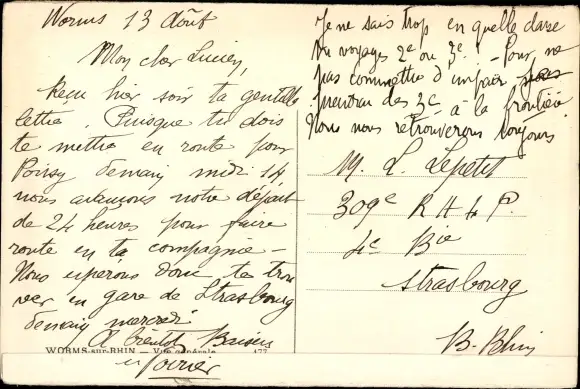 Worms 13 Août
Mon cher Lucien,
Reçu hier soir ta gentille
lettre. Puisque tu dois
te mettre en route pour
Poissy demain midi 14,
nous avançons notre départ
de 24 heures pour faire
route en ta compagnie -
Nous espérons donc te trou
ver en gare de Strasbourg
demain mercredi
A bientôt Baisers
WORMS-sur-RHIN — Vue générale 177
Poirier
Je ne sais trop en quelle classe
tu voyages 2e ou 3e! - Pour ne
pas commettre d'impair
prendrai des 3e à la frontière
Nous nous retrouverons toujours
M. L. Lepetit
309e R A L P.
4e Bie
Strasbourg
B. Rhin